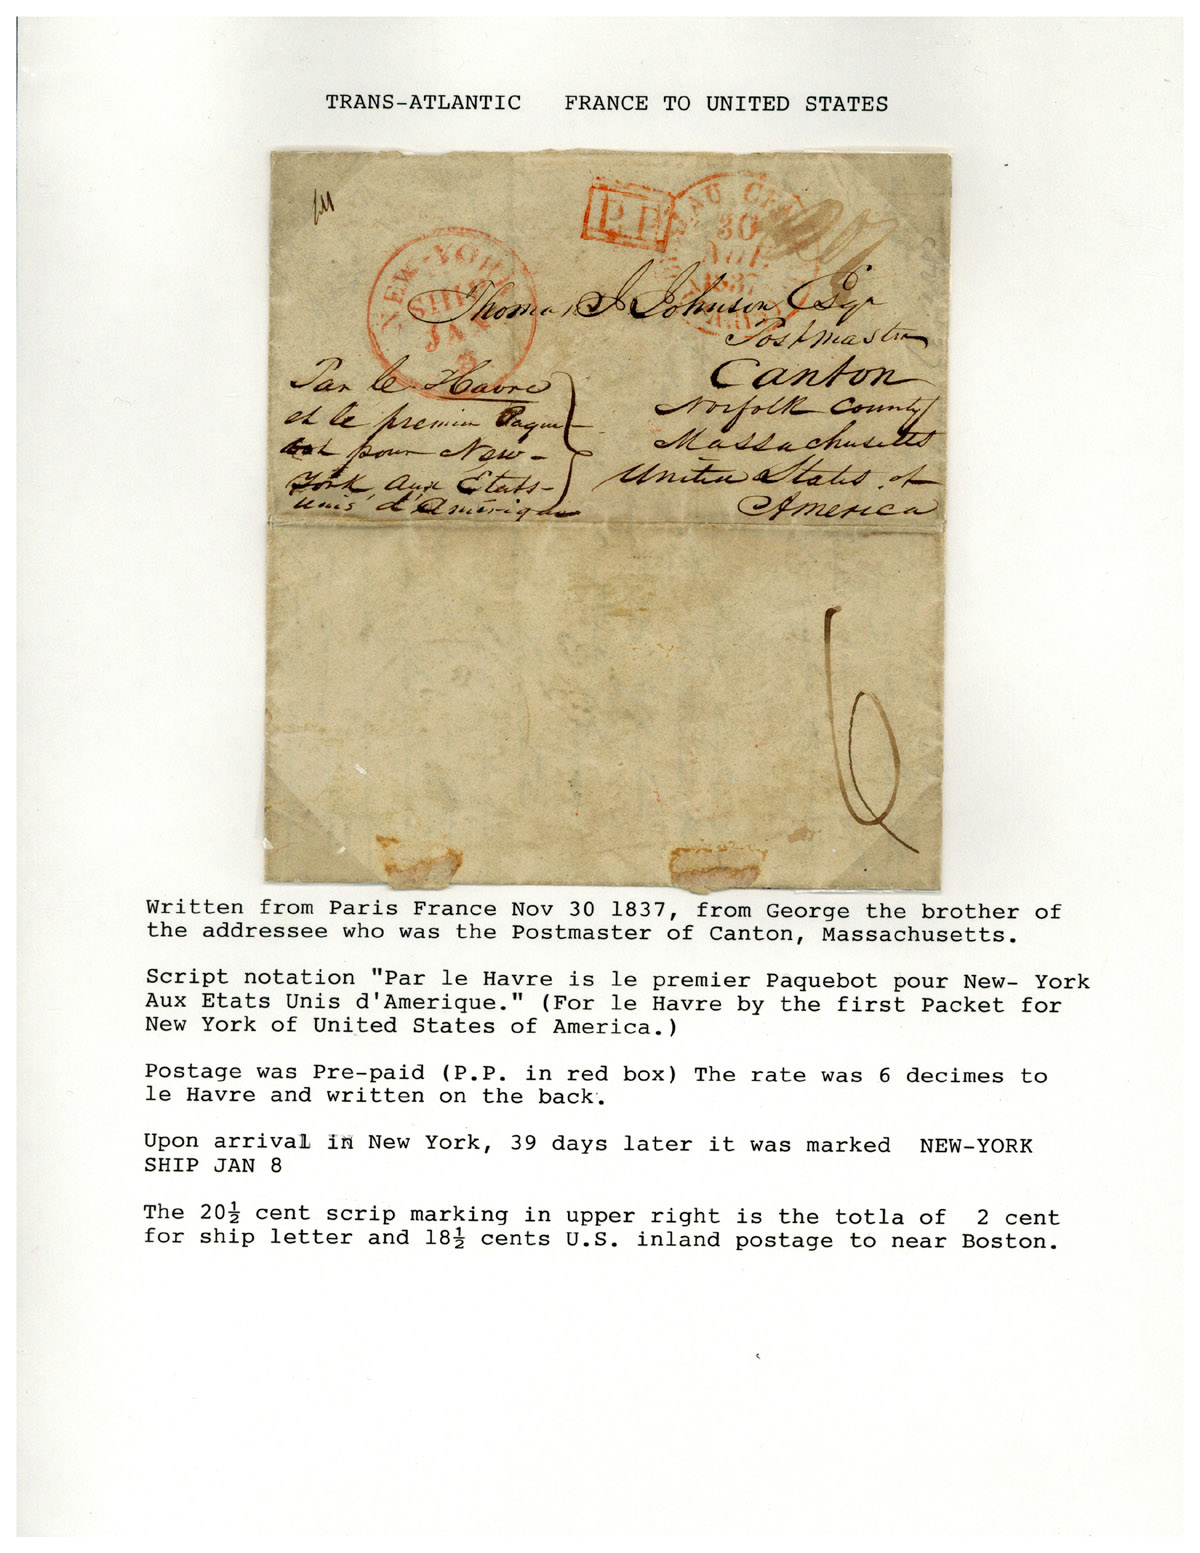 TRANS-ATLANTIC FRANCE TO UNITED STATES
P.P.
BUREAU CEN
30
NOV
1837
PARIS
NEW-YORK
SHIP
JAN
8
Thomas J Johnson Esqr
Postmaster
Canton
Norfolk County
Massachusetts
United States of
America
Par le Havre
et le premier Paque-
bot pour New-
York aux Etats-
unis d'Amérique
6
Written from Paris France Nov 30 1837, from George the brother of
the addressee who was the Postmaster of Canton, Massachusetts.
Script notation "Par le Havre is le premier Paquebot pour New- York
Aux Etats Unis d'Amerique." (For le Havre by the first Packet for
New York of United States of America.)
Postage was Pre-paid (P.P. in red box) The rate was 6 decimes to
le Havre and written on the back.
Upon arrival in New York, 39 days later it was marked NEW-YORK
SHIP JAN 8
The 20½ cent scrip marking in upper right is the totla of 2 cent
for ship letter and 18½ cents U.S. inland postage to near Boston.